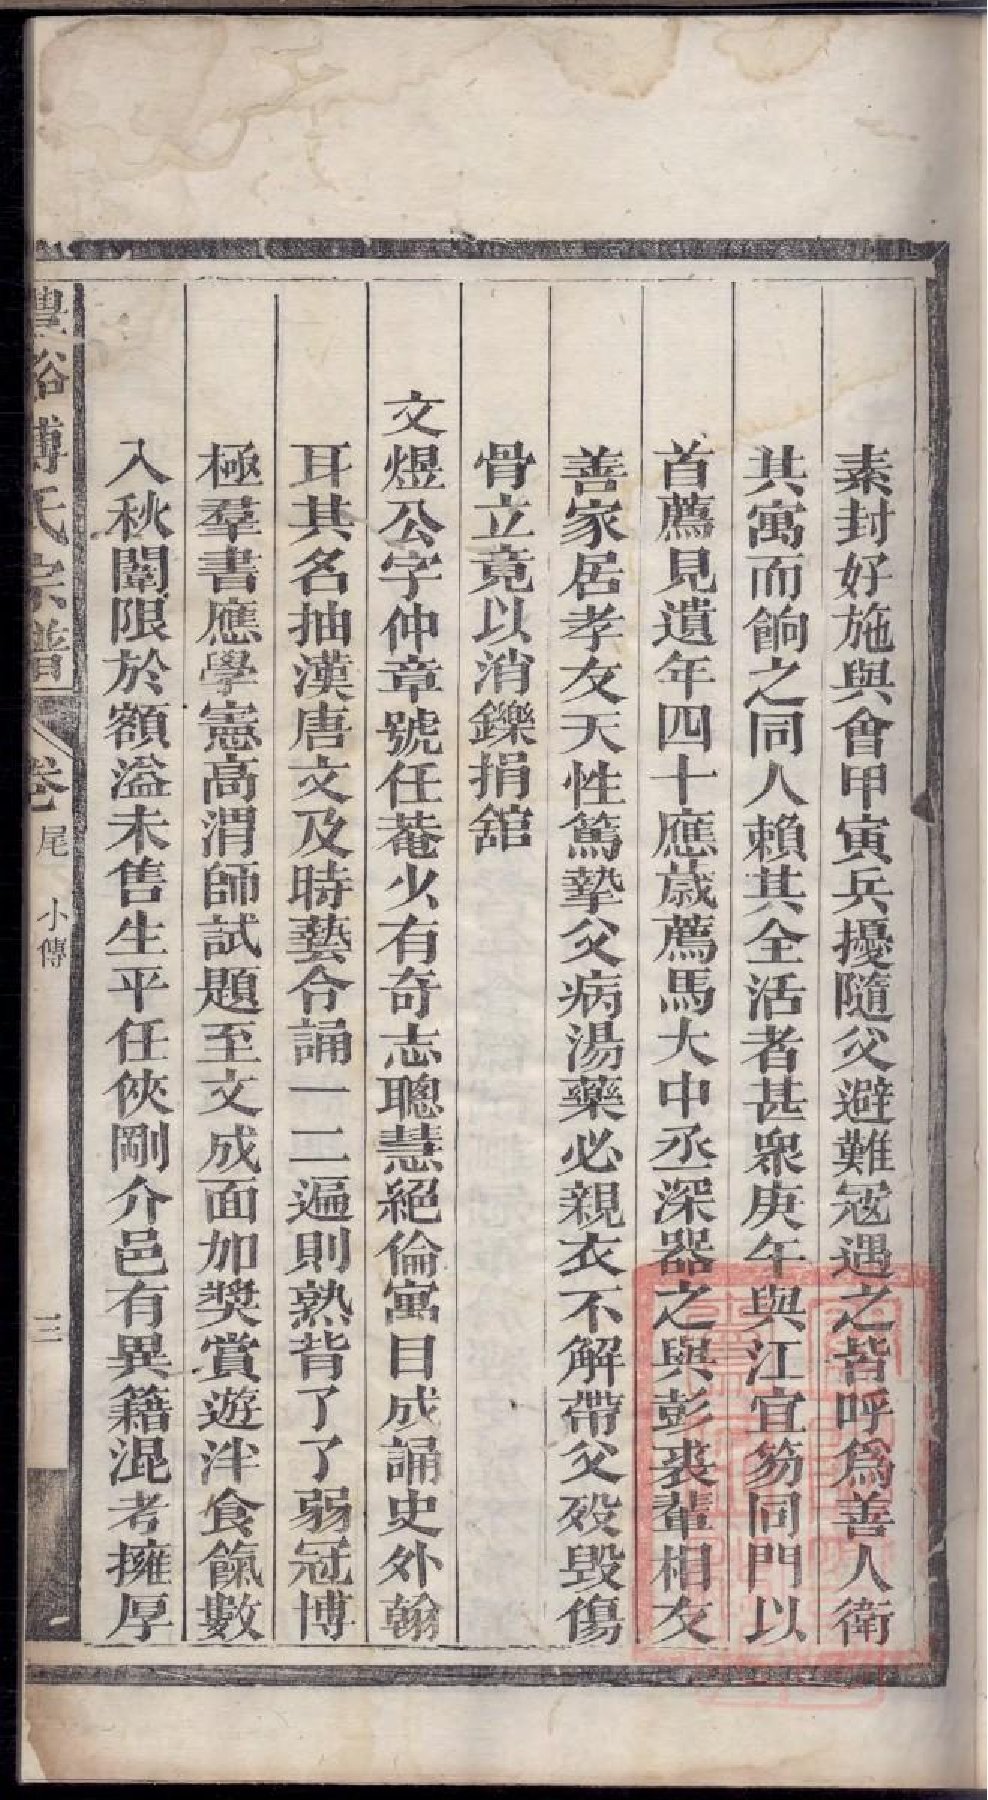 素封好施與會甲寅兵擾隨父避難寇遇之皆呼爲善人衛
其寓而餉之同人賴其全活者甚衆庚午與江宜笏同門以
首薦見遺年四十應歲薦馬大中丞深器之與彭裘輩相友
善家居孝友天性篤摯父病湯藥必親衣不解帶父歿毀傷
骨立竟以消鑠捐舘
文煜公字仲章號任菴少有奇志聰慧絕倫寓目成誦史外翰
耳其名抽漢唐文及時藝令誦一二遍則熟背了了弱冠博
極羣書應學憲高渭師試題至文成面加奬賞遊泮食餼數
入秋闈限於額溢未售生平任俠剛介邑有異籍混考擁厚
豐谿傅氏宗譜 卷尾 小傳 三